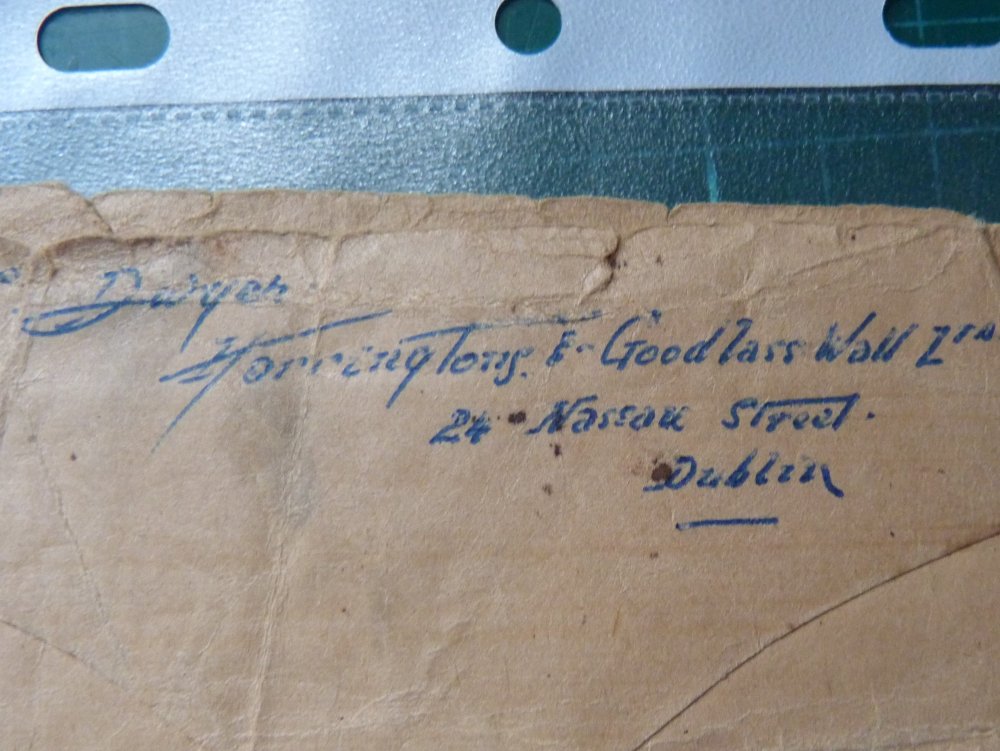 Dwyer
Harringtons & Goodlass Wall Ltd
24 Nassau Street.
Dublin